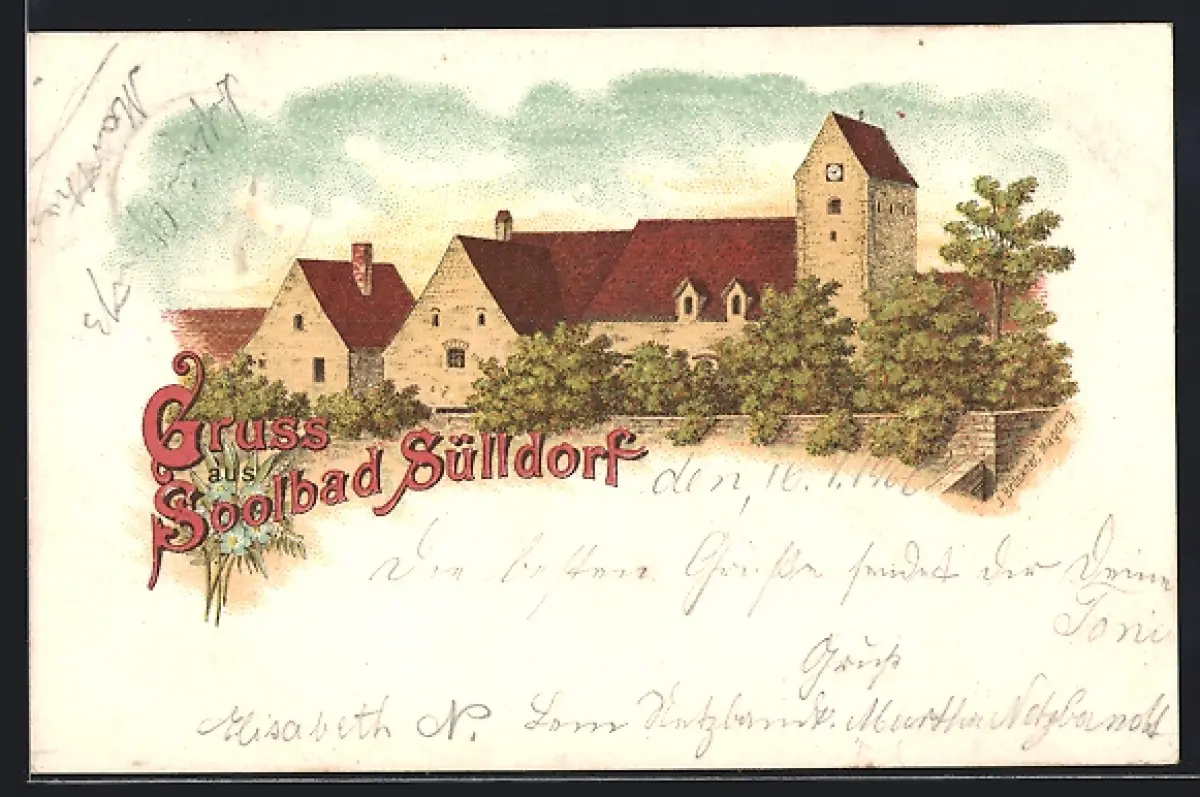 Gruss
aus
Soolbad Sülldorf
den, 16. 1. 190
Die besten Grüße sendet dir Deine
Toni
Gruß
Elisabeth N. Netzbandt. Martha Netzbandt
Martha